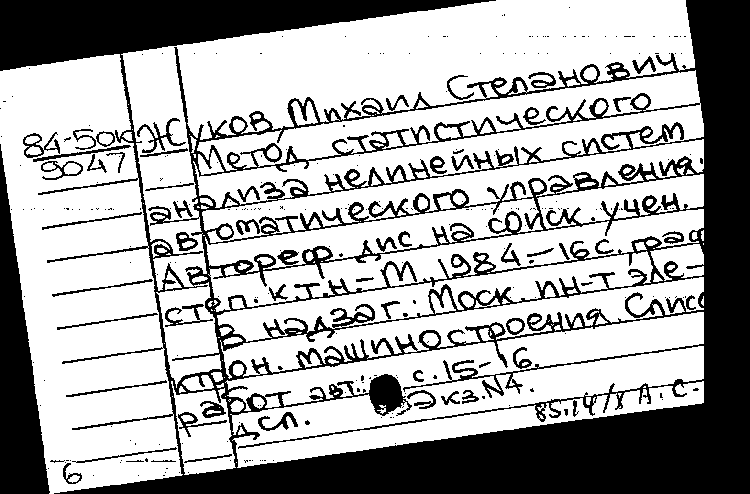 84-50к Жуков, Михаил Степанович.
9047 Метод статистического
анализа нелинейных систем
автоматического управления:
Автореф. дис. на соиск. учен.
степ. к.т.н.-М., 1984.-16 с., граф
В надзаг.: Моск. ин-т эле-
ктрон. машиностроения. Списо
работ авт.: с. 15-16.
Дсп. Экз. N4.
85.14/X А. С.
6